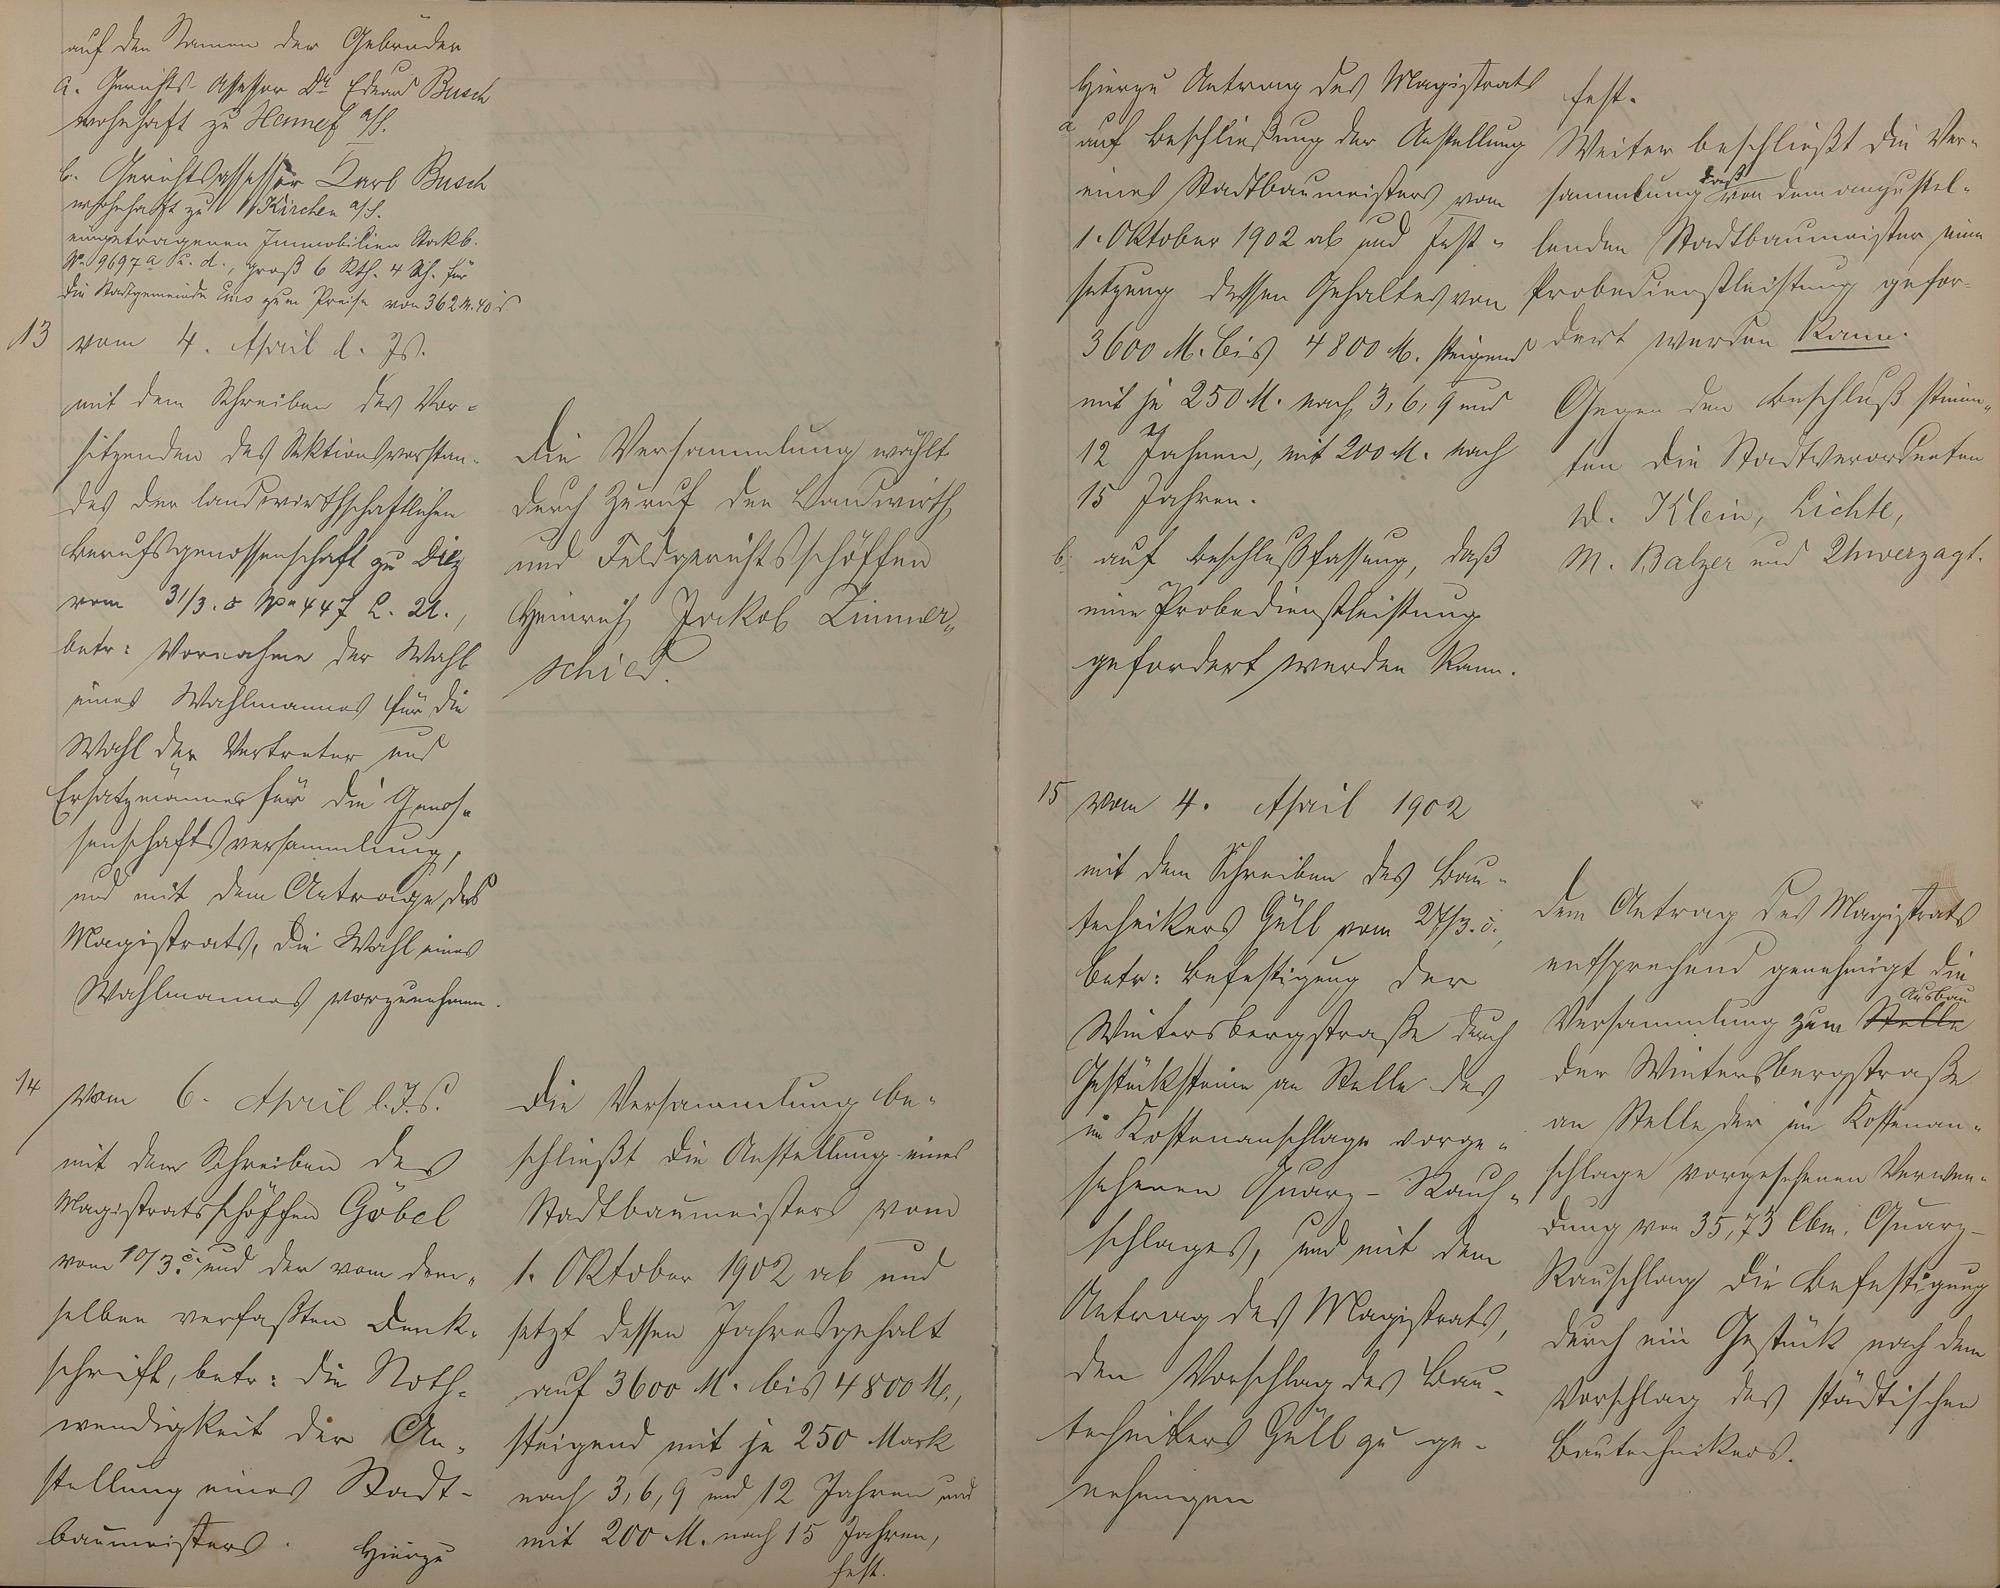 auf den Namen der Gebrüder
a. Gerichts-Assessor Dr. Eduard Busch
wohnhaft zu Hennef a/S.
b. Gerichtsassessor Karl Busch
wohnhaft zu Kirchen a/S.
eingetragenen Immobilien Stockb.
No 9697a, groß 6 Rth. 4 Sch. für
die Stadtgemeinde Ems zum Preise von 362 M. 40
13 vom 4. April d. Js.
mit dem Schreiben des Vor-
sitzenden des Sektionsvorstan-
des der landwirthschaftlichen
Berufsgenossenschaft zu Diez
vom 31/3. c No 447 L. U.,
betr: Vornahme der Wahl
eines Wahlmannes für die
Wahl der Vertreter und
Ersatzmänner für die Genos-
senschaftsversammlung,
und mit dem Antrage des
Magistrats, die Wahl eines
Wahlmannes vorzunehmen.
14 vom 6. April l. Js.
mit dem Schreiben des
Magistratsschöffen Göbel
vom 10/3. c. und der vom dem-
selben verfaßten Denk-
schrift, betr: die Noth-
wendigkeit der An-
stellung eines Stadt-
baumeisters. Hierzu
Die Versammlung wählt
durch Zuruf den Landwirth
und Feldgerichtsschöffen
Heinrich Jakob Zimmer-
schied.
Die Versammlung be-
schließt die Anstellung eines
Stadtbaumeisters vom
1. Oktober 1902 ab und
setzt dessen Jahresgehalt
auf 3600 M. bis 4800 M.,
steigend mit je 250 Mark
nach 3, 6, 9 und 12 Jahren und
mit 200 M. nach 15 Jahren,
fest.
Hierzu Antrag des Magistrats
a auf Beschließung der Anstellung
eines Stadtbaumeisters vom
1. Oktober 1902 ab und Fest-
setzung dessen Gehaltes von
3600 M. bis 4800 M. steigend
mit je 250 M. nach 3, 6, 9 und
12 Jahren, mit 200 M. nach
15 Jahren.
b. auf Beschlußfassung, daß
eine Probedienstleistung
gefordert werden kann.
15 vom 4. April 1902
mit dem Schreiben des Bau-
technikers Güll vom 27/3. c.,
betr: Befestigung der
Wintersbergstraße durch
Gestücksteine an Stelle des
im Kostenanschlage vorge-
sehenen Quarz-Rauh-
schlages, und mit dem
Antrag des Magistrats,
den Vorschlag des Bau-
technikers Güll zu ge-
nehmigen
fest.
Weiter beschließt die Ver-
sammlung daß von dem anzustel-
lenden Stadtbaumeister eine
Probedienstleistung gefor-
dert werden kann.
Gegen den Beschluß stimm-
ten die Stadtverordneten
W. Klein, Lichte,
M. Balzer und Unverzagt.
Dem Antrag des Magistrats
entsprechend genehmigt die
Versammlung zum Stelle Ausbau
der Wintersbergstraße
an Stelle der im Kostenan-
schlage vorgesehenen Verwen-
dung von 35,73 Cbm. Quarz-
Rauschlag die Befestigung
durch ein Gestück nach dem
Vorschlag des städtischen
Bautechnikers.